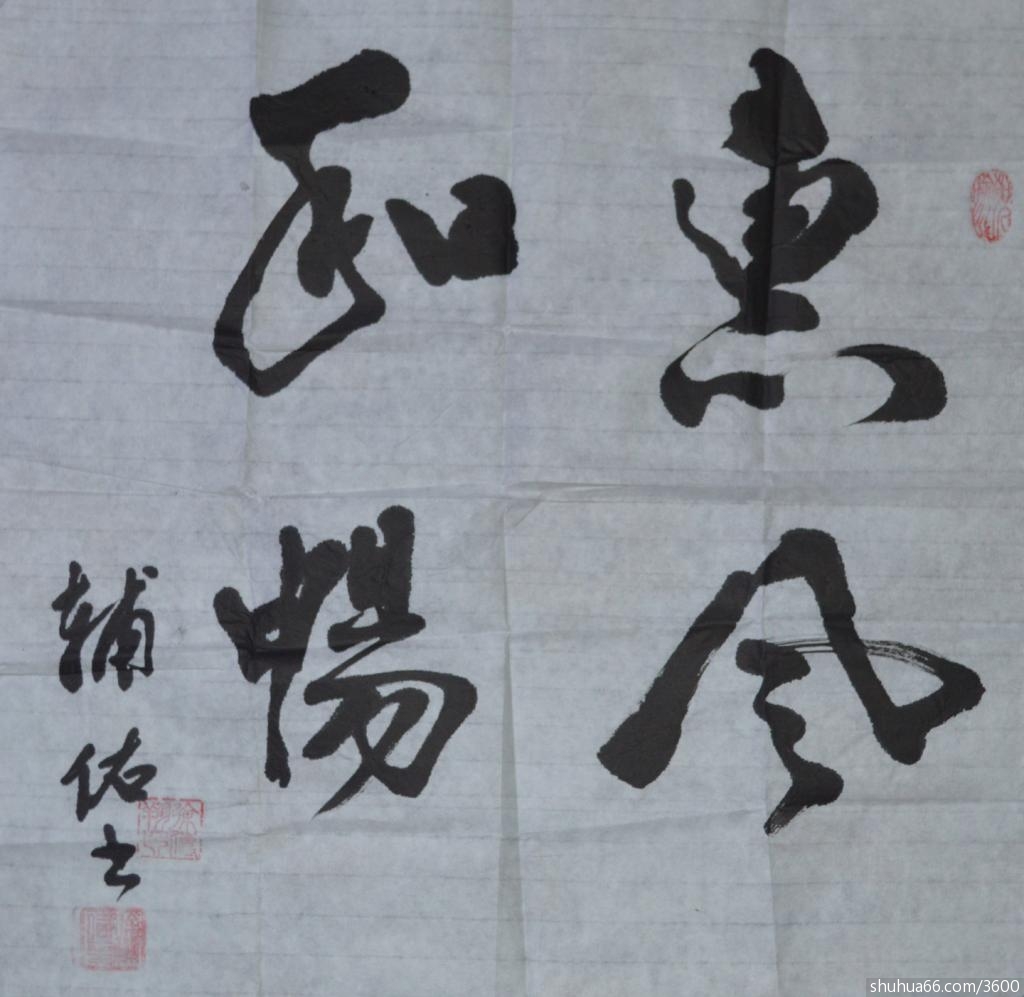 惠风
和畅
辅佑书
shuhua66.com/3600